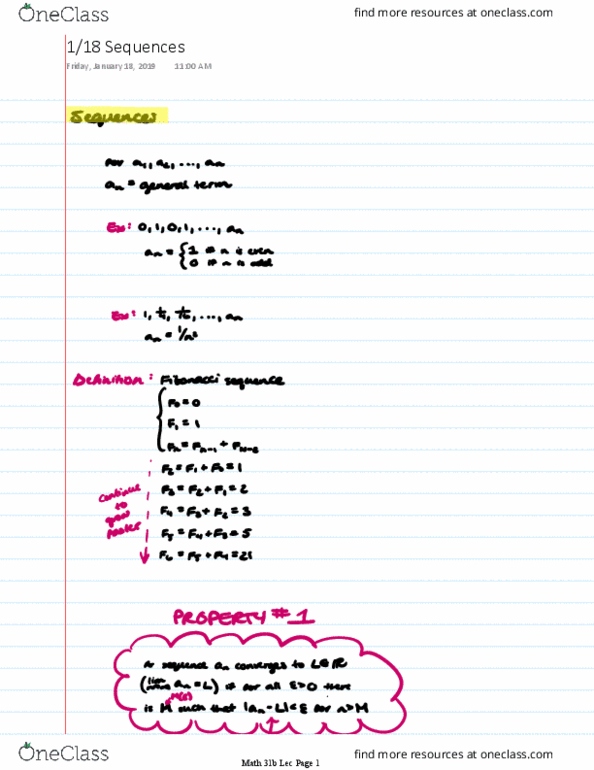 OneClass
find more resources at oneclass.com
1/18 Sequences
Friday, January 18, 2019 11:00 AM
Sequences
For a₁, a₂, ..., aₙ
aₙ = general term
Ex: 0, 1, 0, 1, ..., aₙ
aₙ = { 1 if n is even
0 if n is odd
Ex: 1, 1/4, ..., aₙ
aₙ = 1/n²
Definition: Fibonacci sequence
F₀ = 0
F₁ = 1
Fₙ = Fₙ₋₁ + Fₙ₋₂
F₂ = F₁ + F₀ = 1
F₃ = F₂ + F₁ = 2
F₄ = F₃ + F₂ = 3
F₅ = F₄ + F₃ = 5
F₆ = F₅ + F₄ = 21
continue
to
grow
faster
PROPERTY #1
A sequence aₙ converges to L∈ℝ
(lim aₙ = L) if for all ε>0 there
is M such that |aₙ - L| < ε for n > M
M(ε)
OneClass
find more resources at oneclass.com
Math 31b Lec Page 1